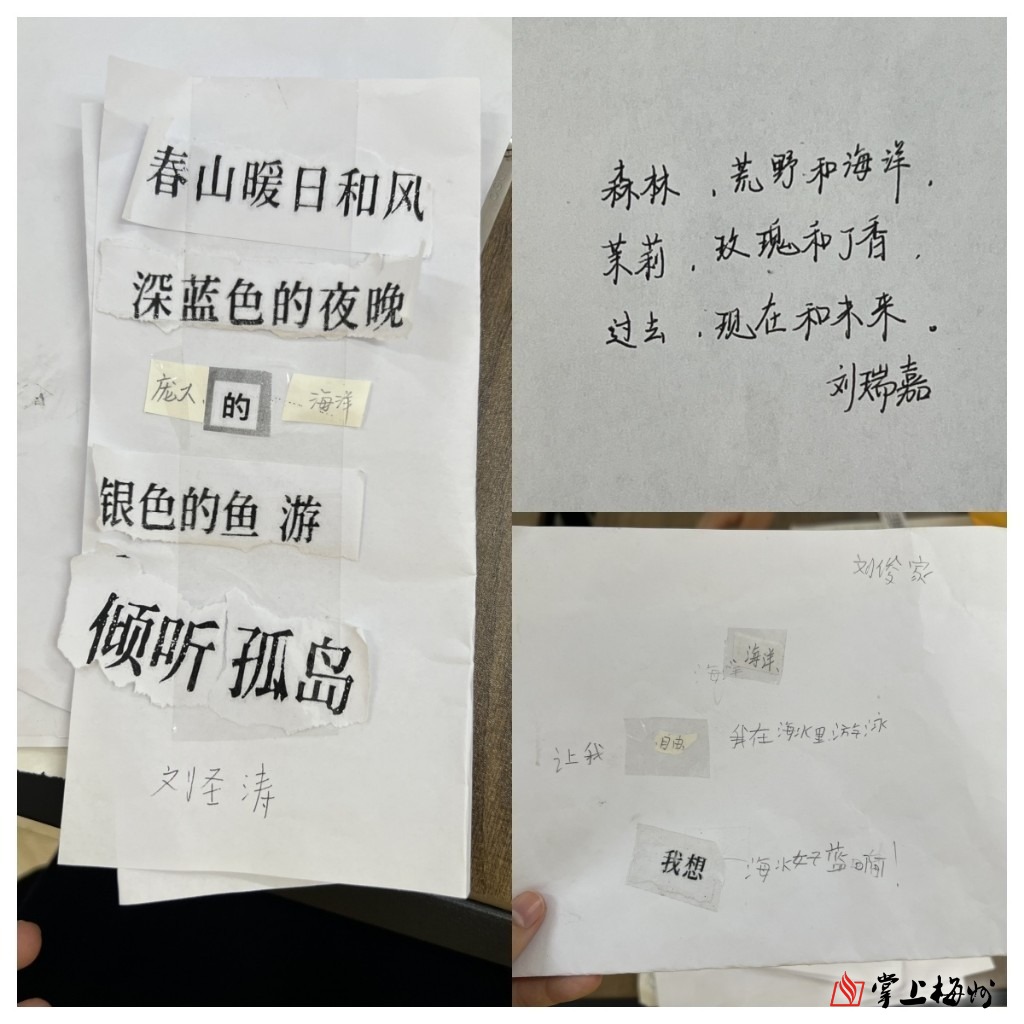 春山暖日和风
深蓝色的夜晚
庞大的海洋
银色的鱼 游
倾听 孤岛
刘圣涛
森林，荒野和海洋，
茉莉，玫瑰和丁香，
过去，现在和未来。
刘瑞嘉
刘俊家
海洋 海洋
让我 自由 我在海水里游泳
我想 海水好蓝啊！
掌上梅州